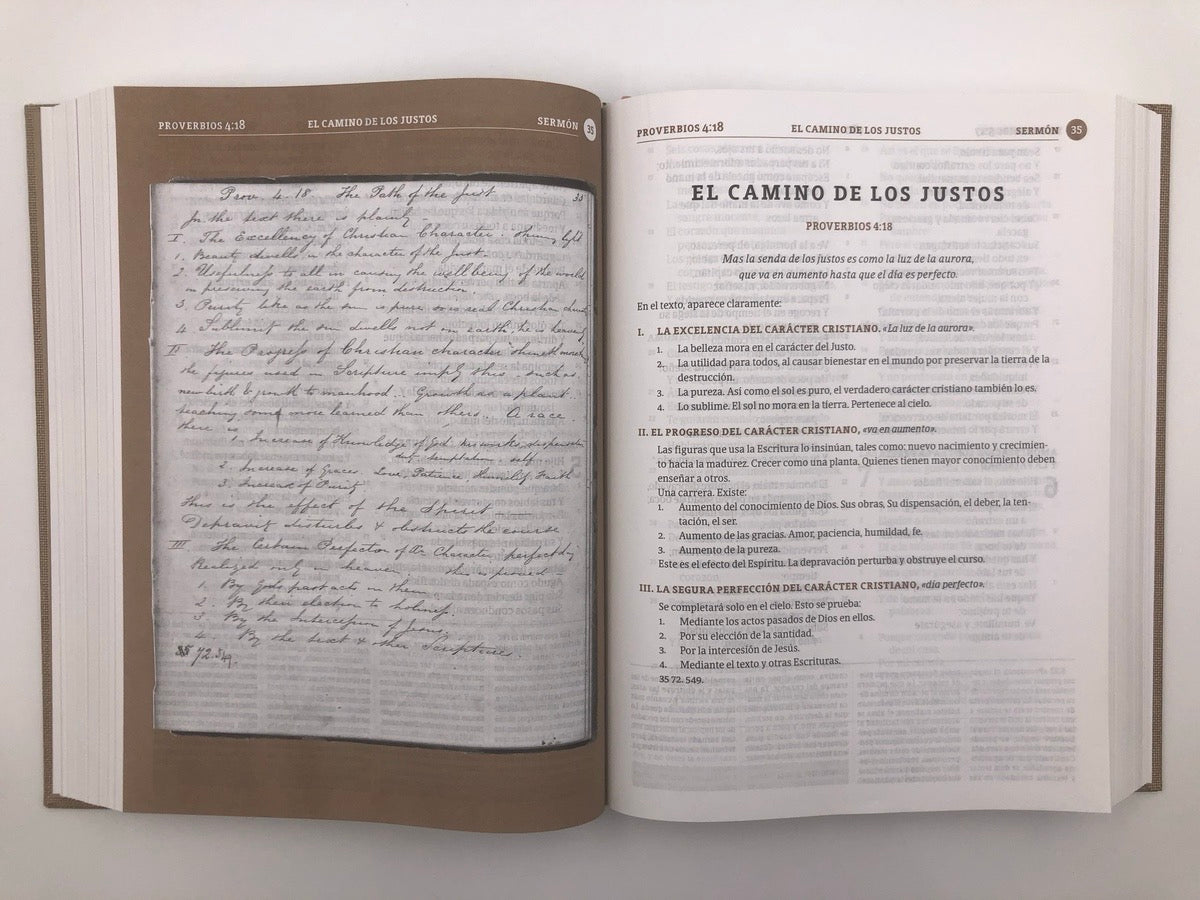 PROVERBIOS 4:18 EL CAMINO DE LOS JUSTOS SERMÓN 35
Prov. 4.18. The Path of the Just 35
In the text there is plainly
I. The Excellency of Christian Character. shining light
1. Beauty dwells in the character of the Just.
2. Usefulness to all in causing the wellbeing of the world
in preserving the earth from destruction.
3. Purity like as the sun is pure so is real Christian
4. Sublimity the sun dwells not on earth, he is heavenly
II The Progress of Christian character shineth more
the figures used in Scripture imply this. such as.
new birth & growth to manhood. Growth as a plant
teaching some more learned than others. A race.
there is
1. Increase of Knowledge of God his works, dispensation
duty, temptation, self
2. Increase of Graces. Love, Patience, Humility, Faith
3. Increase of Purity
This is the effect of the Spirit
Depravity disturbs & obstructs the course
III The Certain Perfection of Character perfect day
Realized only in heaven this is proved
1. By Gods past acts in them
2. By their election to holiness.
3. By the Intercession of Jesus.
4. By the text & other Scriptures.
35 72.549.
PROVERBIOS 4:18 EL CAMINO DE LOS JUSTOS SERMÓN 35
EL CAMINO DE LOS JUSTOS
PROVERBIOS 4:18
Mas la senda de los justos es como la luz de la aurora,
que va en aumento hasta que el día es perfecto.
En el texto, aparece claramente:
I. LA EXCELENCIA DEL CARÁCTER CRISTIANO. «La luz de la aurora».
1. La belleza mora en el carácter del Justo.
2. La utilidad para todos, al causar bienestar en el mundo por preservar la tierra de la
destrucción.
3. La pureza. Así como el sol es puro, el verdadero carácter cristiano también lo es.
4. Lo sublime. El sol no mora en la tierra. Pertenece al cielo.
II. EL PROGRESO DEL CARÁCTER CRISTIANO, «va en aumento».
Las figuras que usa la Escritura lo insinúan, tales como: nuevo nacimiento y crecimien-
to hacia la madurez. Crecer como una planta. Quienes tienen mayor conocimiento deben
enseñar a otros.
Una carrera. Existe:
1. Aumento del conocimiento de Dios. Sus obras, Su dispensación, el deber, la ten-
tación, el ser.
2. Aumento de las gracias. Amor, paciencia, humildad, fe.
3. Aumento de la pureza.
Este es el efecto del Espíritu. La depravación perturba y obstruye el curso.
III. LA SEGURA PERFECCIÓN DEL CARÁCTER CRISTIANO, «día perfecto».
Se completará solo en el cielo. Esto se prueba:
1. Mediante los actos pasados de Dios en ellos.
2. Por su elección de la santidad.
3. Por la intercesión de Jesús.
4. Mediante el texto y otras Escrituras.
35 72. 549.